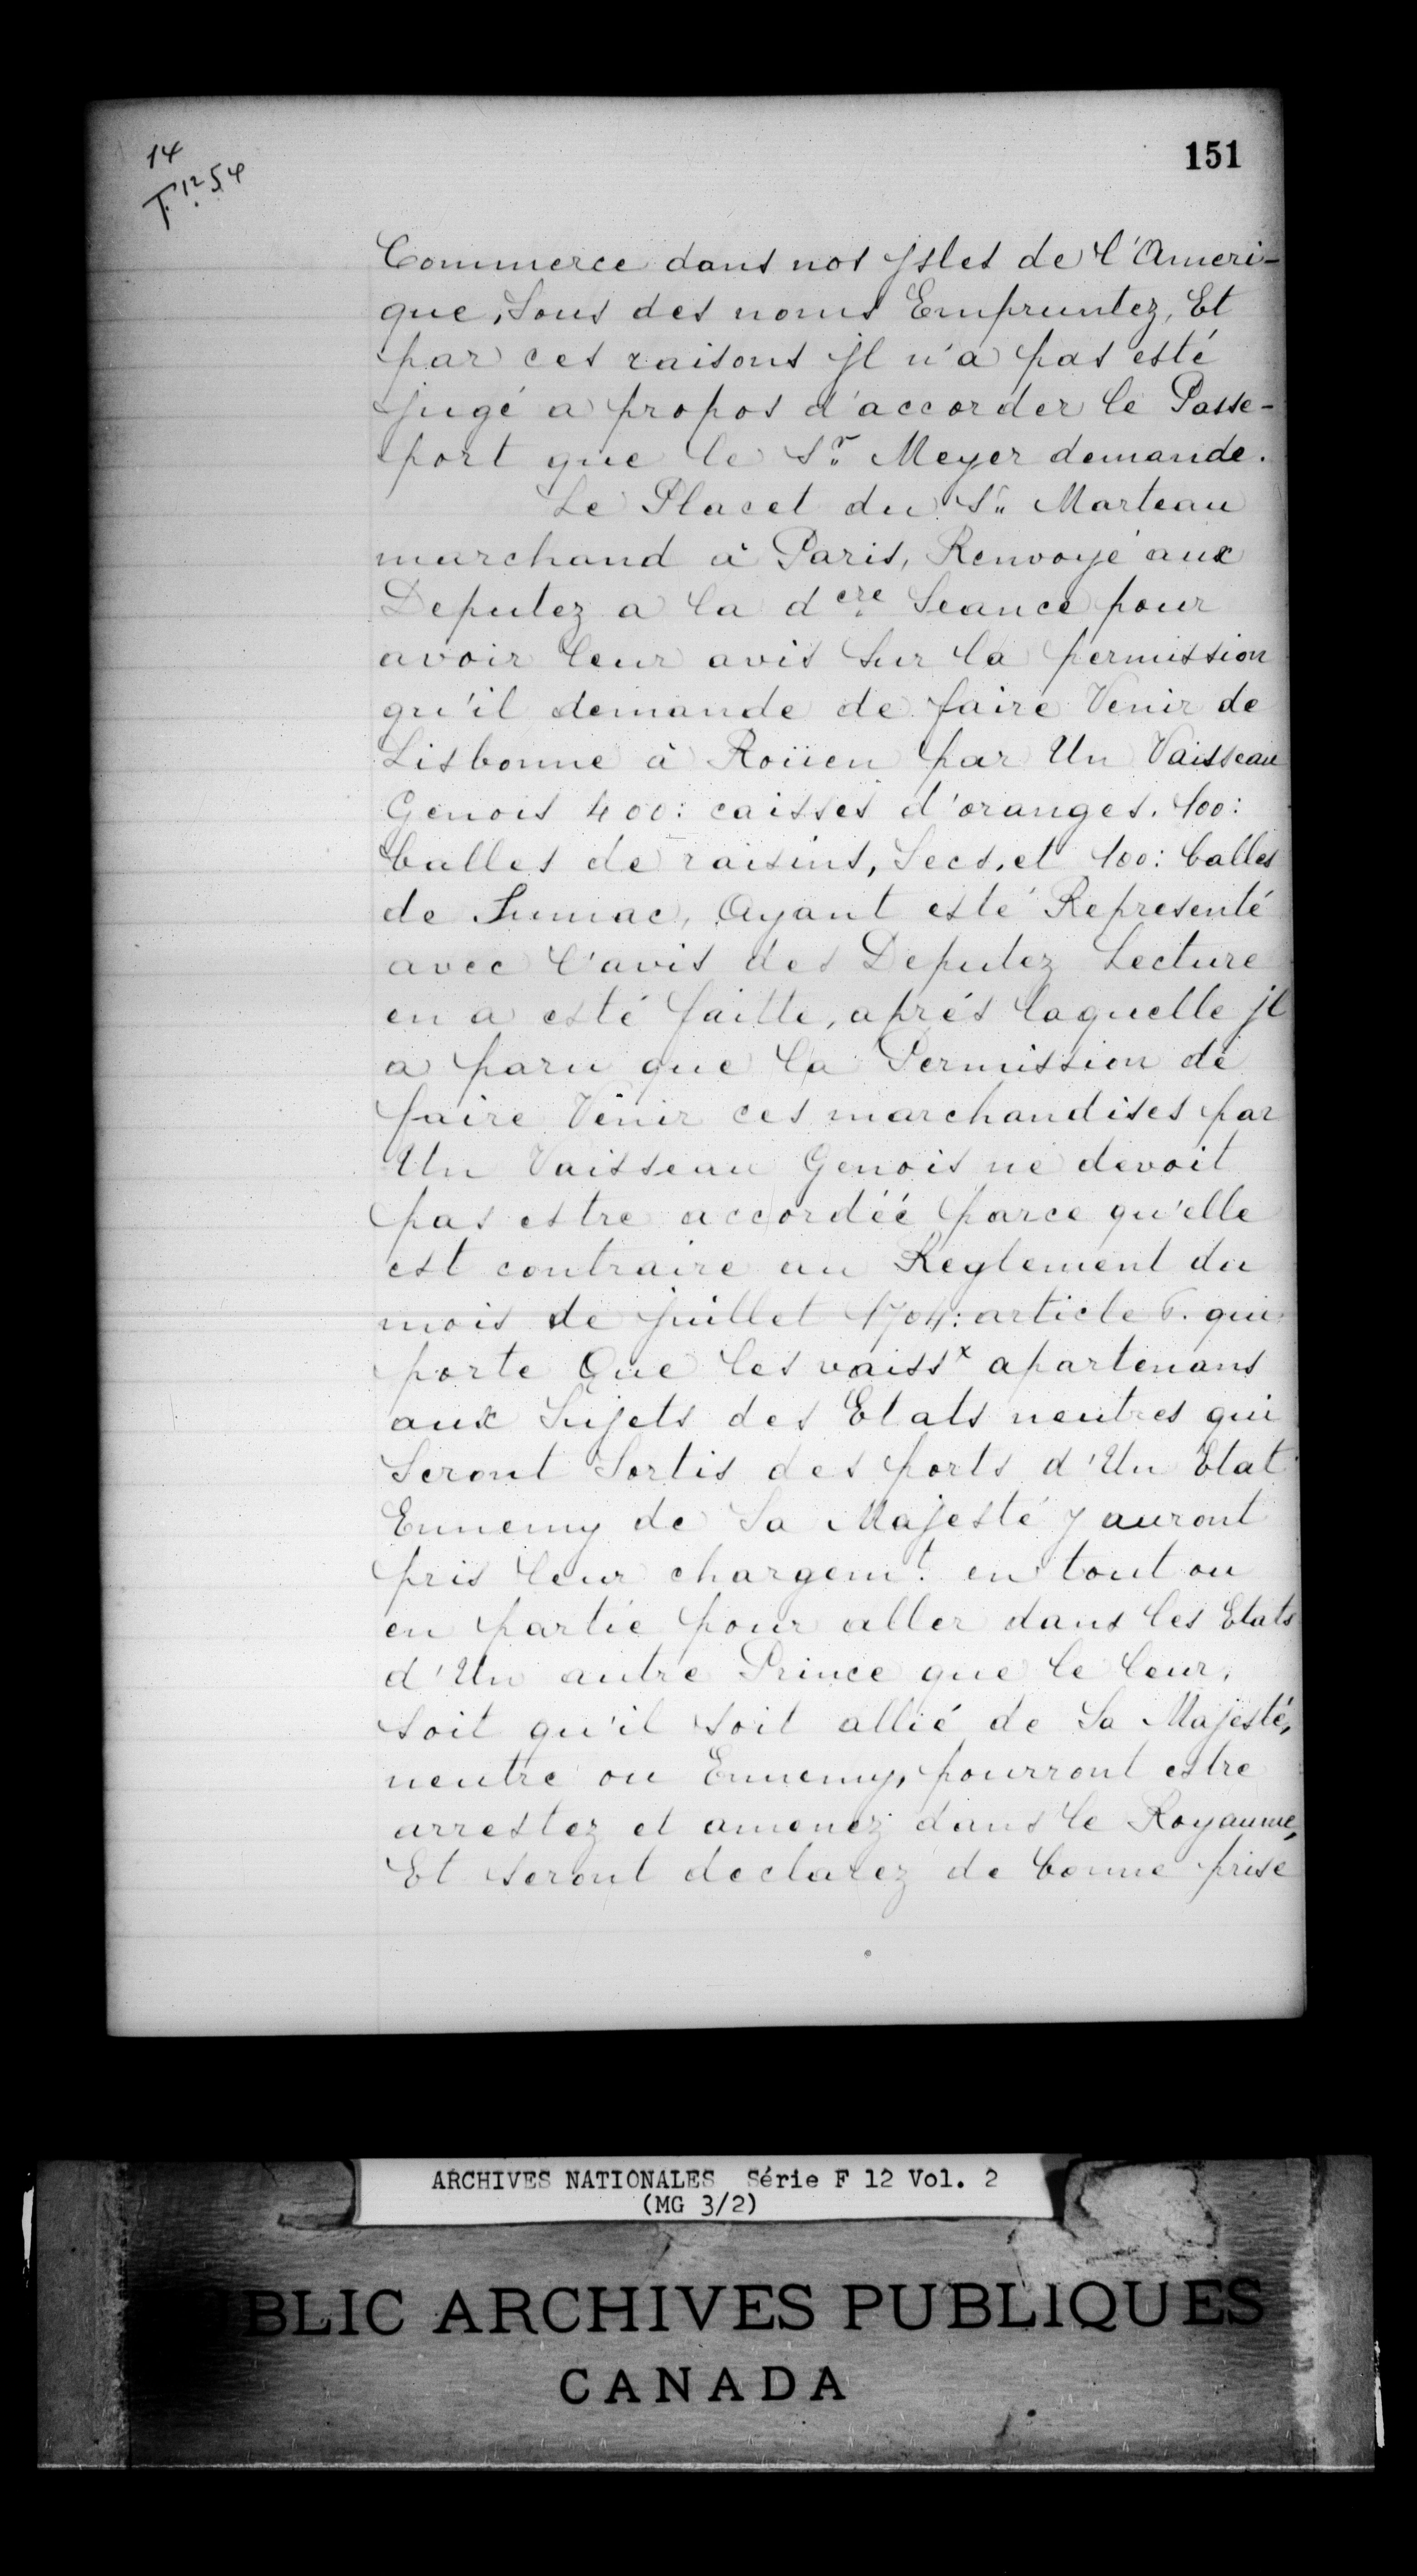 14
F.12 54
151
Commerce dans nos jsles de l'Ameri-
que, Sous des noms Empruntez, Et
par ces raisons jl n'a pas esté
jugé a propos d'accorder le Passe-
port que le Sr. Meyer demande.
Le Placet du Sr. Marteau
marchand à Paris, Renvoyé aux
Deputez a la dere Seance pour
avoir leur avis Sur la permission
qu'il demande de faire Venir de
Lisbonne à Roüen par Un Vaisseau
Genois 400: caisses d'oranges. 100:
balles de raisins, Secs, et 100: balles
de Sumac, Ayant esté Representé
avec l'avis des Deputez Lecture
en a esté faitte, aprés laquelle jl
a paru que la Permission de
faire Venir ces marchandises par
Un Vaisseau Genois ne devoit
pas estre accordéé parce qu'elle
est contraire au Reglement du
mois de juillet 1704: article 6. qui
porte Que les vaissx apartenans
aux Sujets des Etats neutres qui
Seront Sortis des ports d'Un Etat
Ennemy de Sa Majesté y auront
pris leur chargemt. en tout ou
en partie pour aller dans les Etats
d'Un autre Prince que le leur,
soit qu'il soit allié de Sa Majesté,
neutre ou Ennemy, pourront estre
arrestez et amenez dans le Royaume,
Et seront declarez de bonne prise
ARCHIVES NATIONALES Série F 12 Vol. 2
(MG 3/2)
UBLIC ARCHIVES PUBLIQUES
CANADA